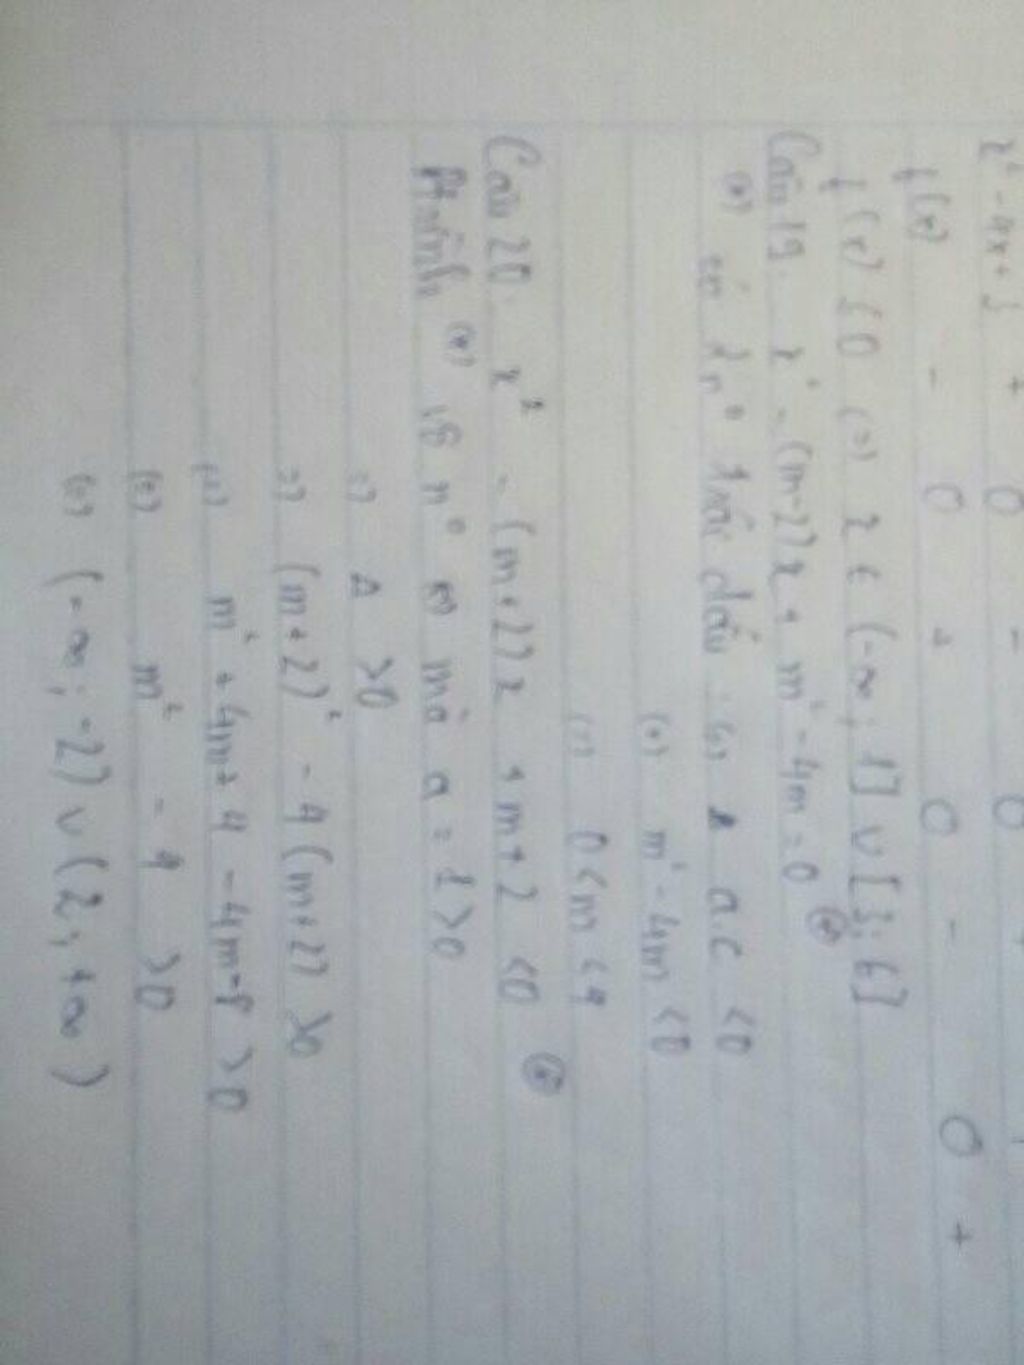 x² - 4x + 3 + 0 - 0 +
f(x) - 0 + 0 - 0 +
f(x) ≤ 0 (=) x ∈ (-∞; 1] ∪ [3; 6]
Câu 19. x² - (m-2)x + m² - 4m = 0 (*)
(*) có 2 n° trái dấu (=) a.c < 0
(=) m² - 4m < 0
(=) 0 < m < 4
Câu 20. x² - (m+2)x + m+2 < 0 (*)
(*) n° mà a = 1 > 0
=) Δ > 0
=) (m+2)² - 4(m+2) > 0
(=) m² + 4m + 4 - 4m - 8 > 0
(=) m² - 4 > 0
(=) (-∞; -2) ∪ (2; +∞)